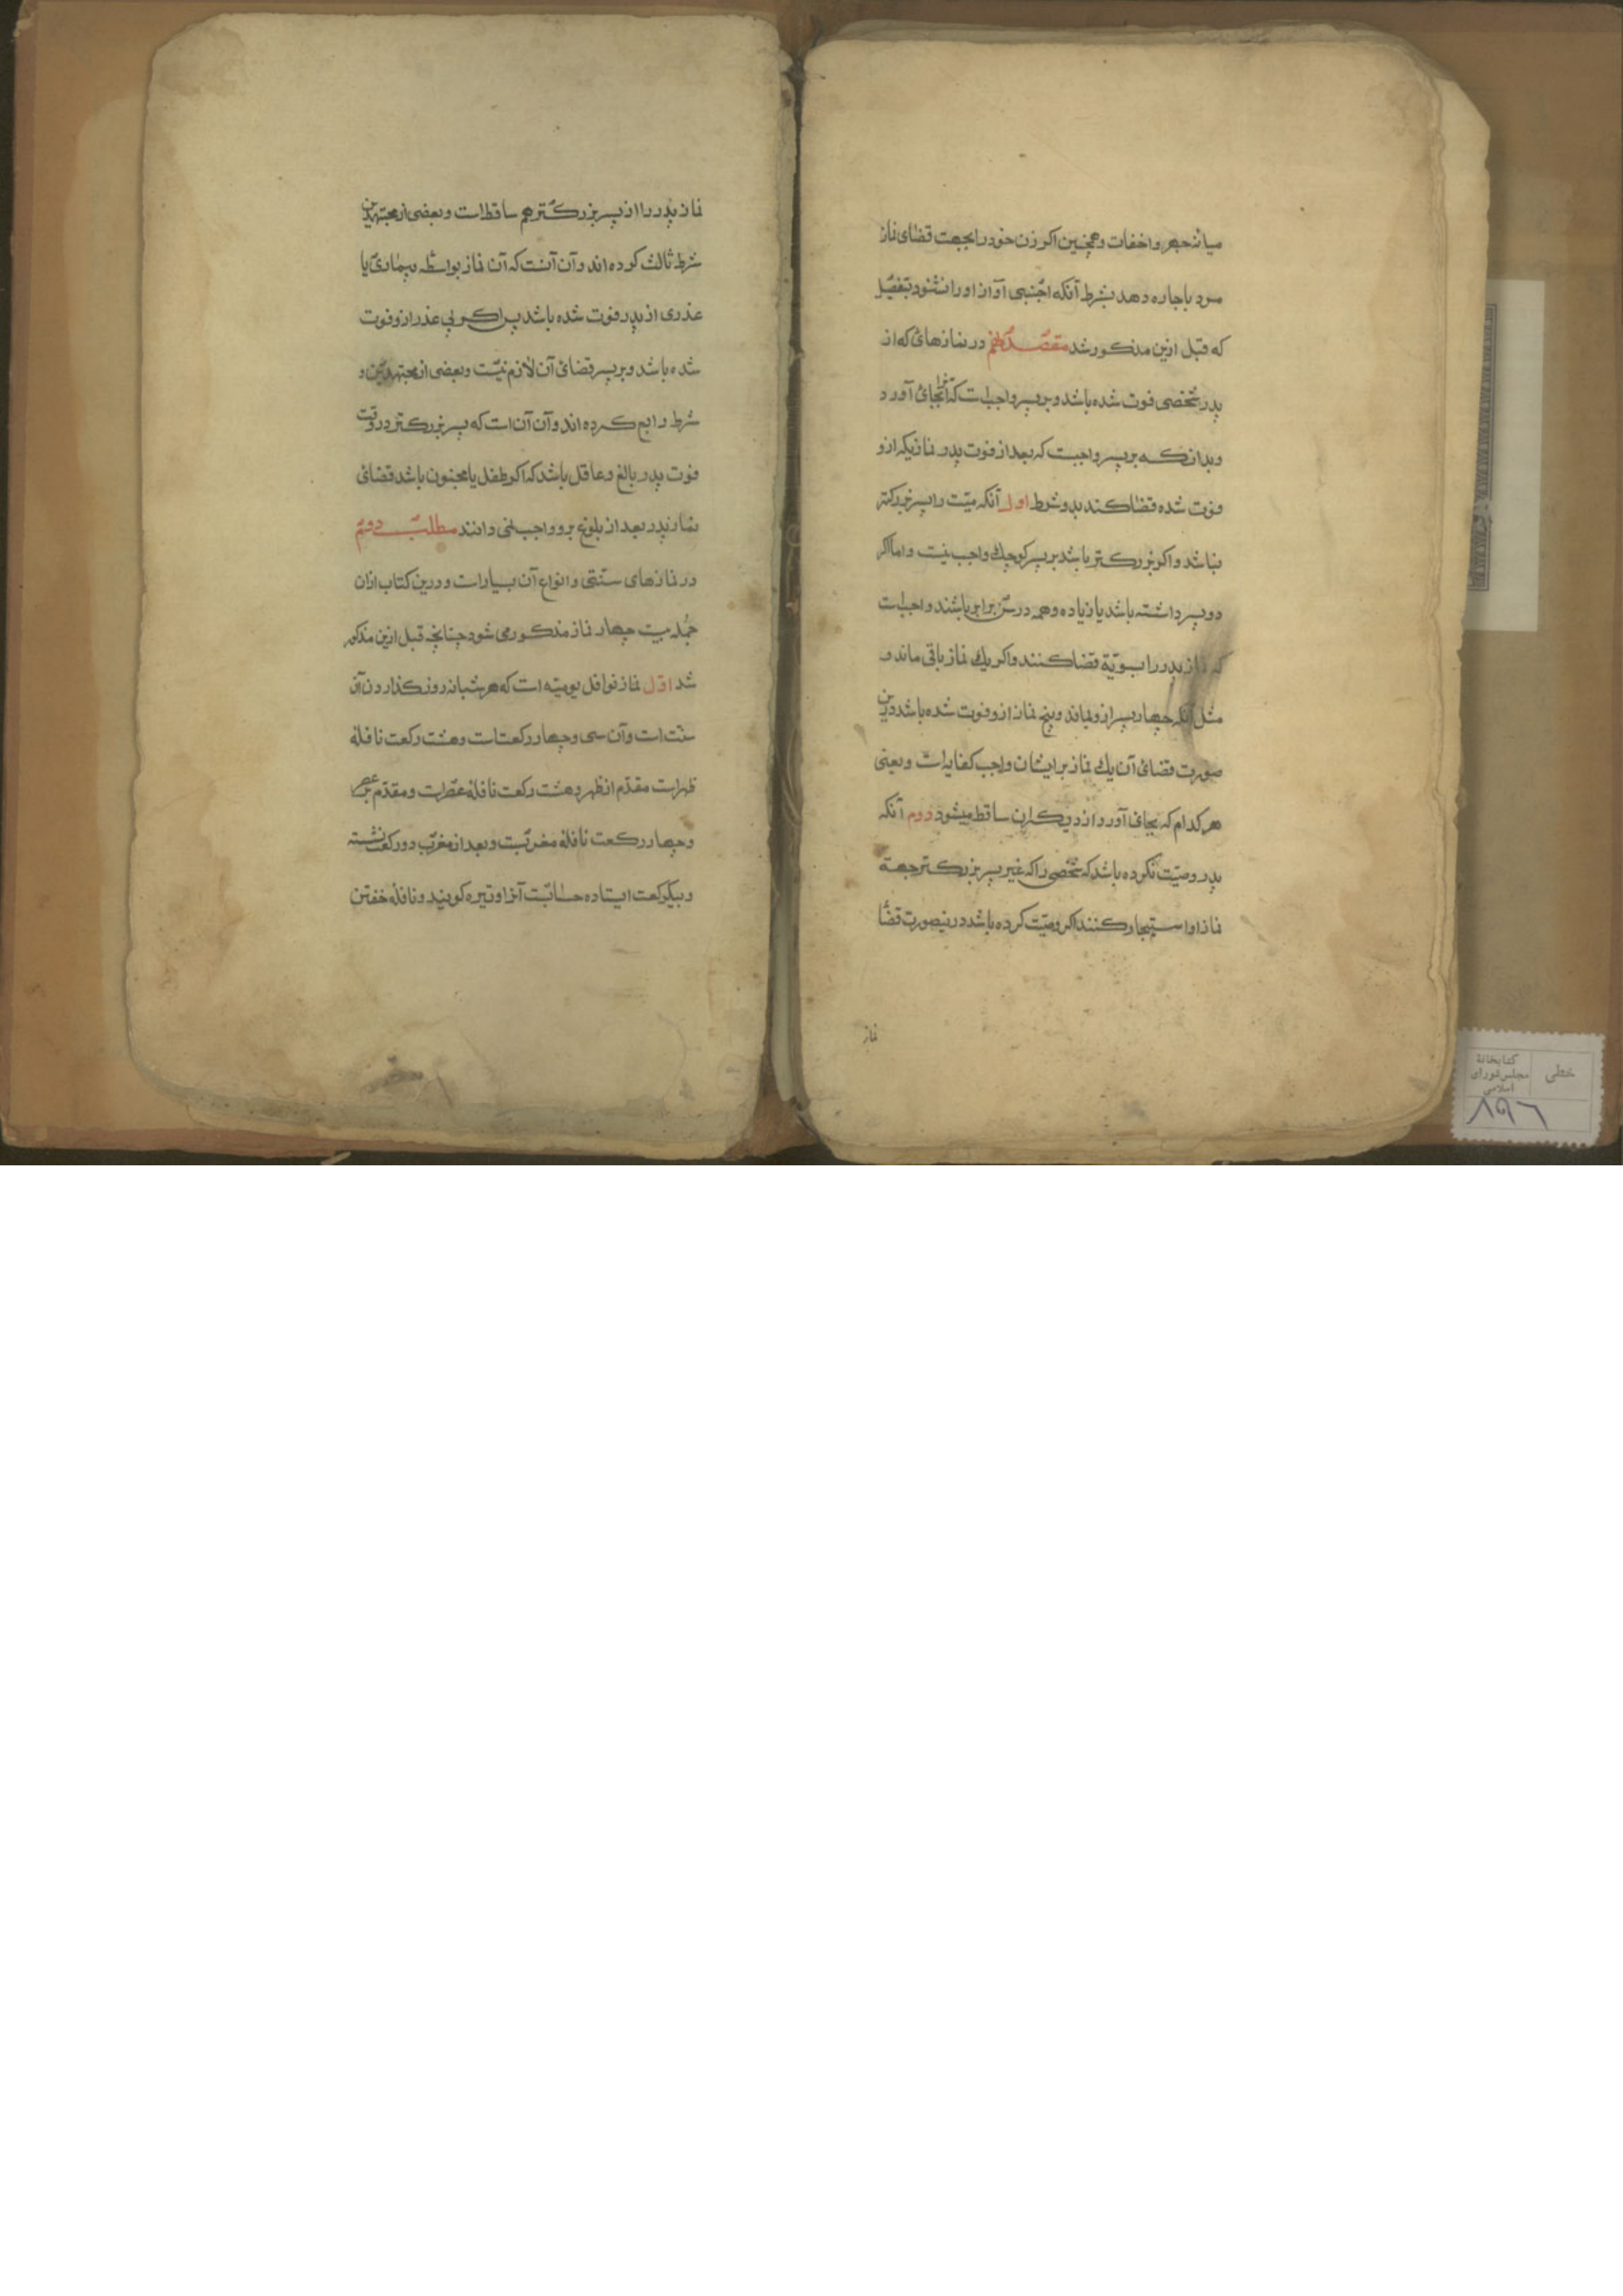 میانه جهر و اخفات و همچنین اکر زن خود را بجهت قضای نماز
مرد باجاره دهد بشرط آنکه اجنبی آواز او را نشنود بتفصیل
که قبل ازین مذکور شد مقصد در نمازهائ که از
پدر شخصی فوت شده باشد و بر پسر واجبست که آنرا بجائ آورد
وبدانکه بر پسر واجبست که بعد از فوت پدر نمازیکه ازو
فوت شده قضا کند بدو شرط اول آنکه میّت را پسر بزرکتر
نباشد واکر بزرکتر باشد بر پسر کوچک واجب نیست و اما اکر
دو پسر داشته باشد یا زیاده و همه در سنّ برابر باشند واجبست
که نماز پدر را بسویّة قضا کنند واکر یک نماز باقی ماند
مثل آنکه چهار پسر ازو بماند و پنج نماز ازو فوت شده باشد درین
صورت قضائ آن یک نماز بر ایشان واجب کفایه است و یعنی
هر کدام که بجای آورد از دیکران ساقط میشود دوم آنکه
پدر وصیّت نکرده باشد که شخصی را که غیر پسر بزرکتر جهة
نماز او استیجار کنند اکر وصیّت کرده باشد درینصورت قضا
نماز
نماز پدر را از پسر بزرکتر هم ساقط است و بعضی از مجتهدین
شرط ثالث کرده اند و آن آنست که آن نماز بواسطه بیماری یا
عذری از پدر فوت شده باشد پس اکر بی عذر ازو فوت
شده باشد و بر پسر قضائ آن لازم نیست و بعضی از مجتهدین و
شرط رابع کرده اند و آن آن است که پسر بزرکتر در وقت
فوت پدر بالغ و عاقل باشد که اکر طفل یا مجنون باشد قضائ
نماز پدر بعد از بلوغ برو واجب نمی دانند مطلب دویّم
در نمازهای سنّتی و انواع آن بسیار است و درین کتاب ازان
جمله بیست چهار نماز مذکور می شود چنانچه قبل ازین مذکور
شد اوّل نماز نوافل یومیّه است که هر شبانه روز کذاردن آن
سنّت است و آن سی و چهار رکعت است و هشت رکعت نافلهٔ
ظهر است مقدّم از ظهر و هشت رکعت نافلهٔ عصر است و مقدّم بر عصر
و چهار رکعت نافلهٔ مغربست و بعد از مغرب دو رکعت نشسته
و بیکرکعت ایستاده حسابست آنرا وتیره کویند و نافلهٔ خفتن
خطی
کتابخانهٔ
مجلس شورای
اسلامی
۸۹۶